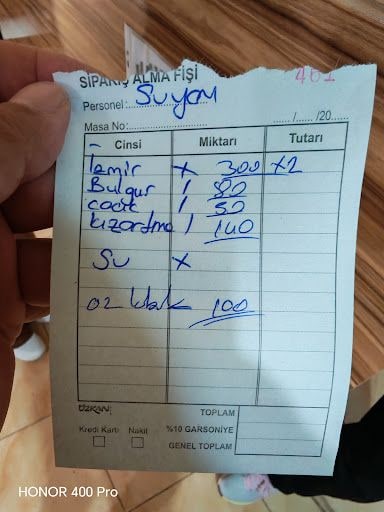 SİPARİŞ ALMA FİŞİ
461
Personel:
Masa No: ...../...../20.....
Cinsi Miktarı Tutarı
İzmir x 300 x2
Bulgur / 80
cacık / 50
kızartma / 140
Su x
100
TOPLAM
Kredi Kartı Nakit %10 GARSONİYE
GENEL TOPLAM
HONOR 400 Pro